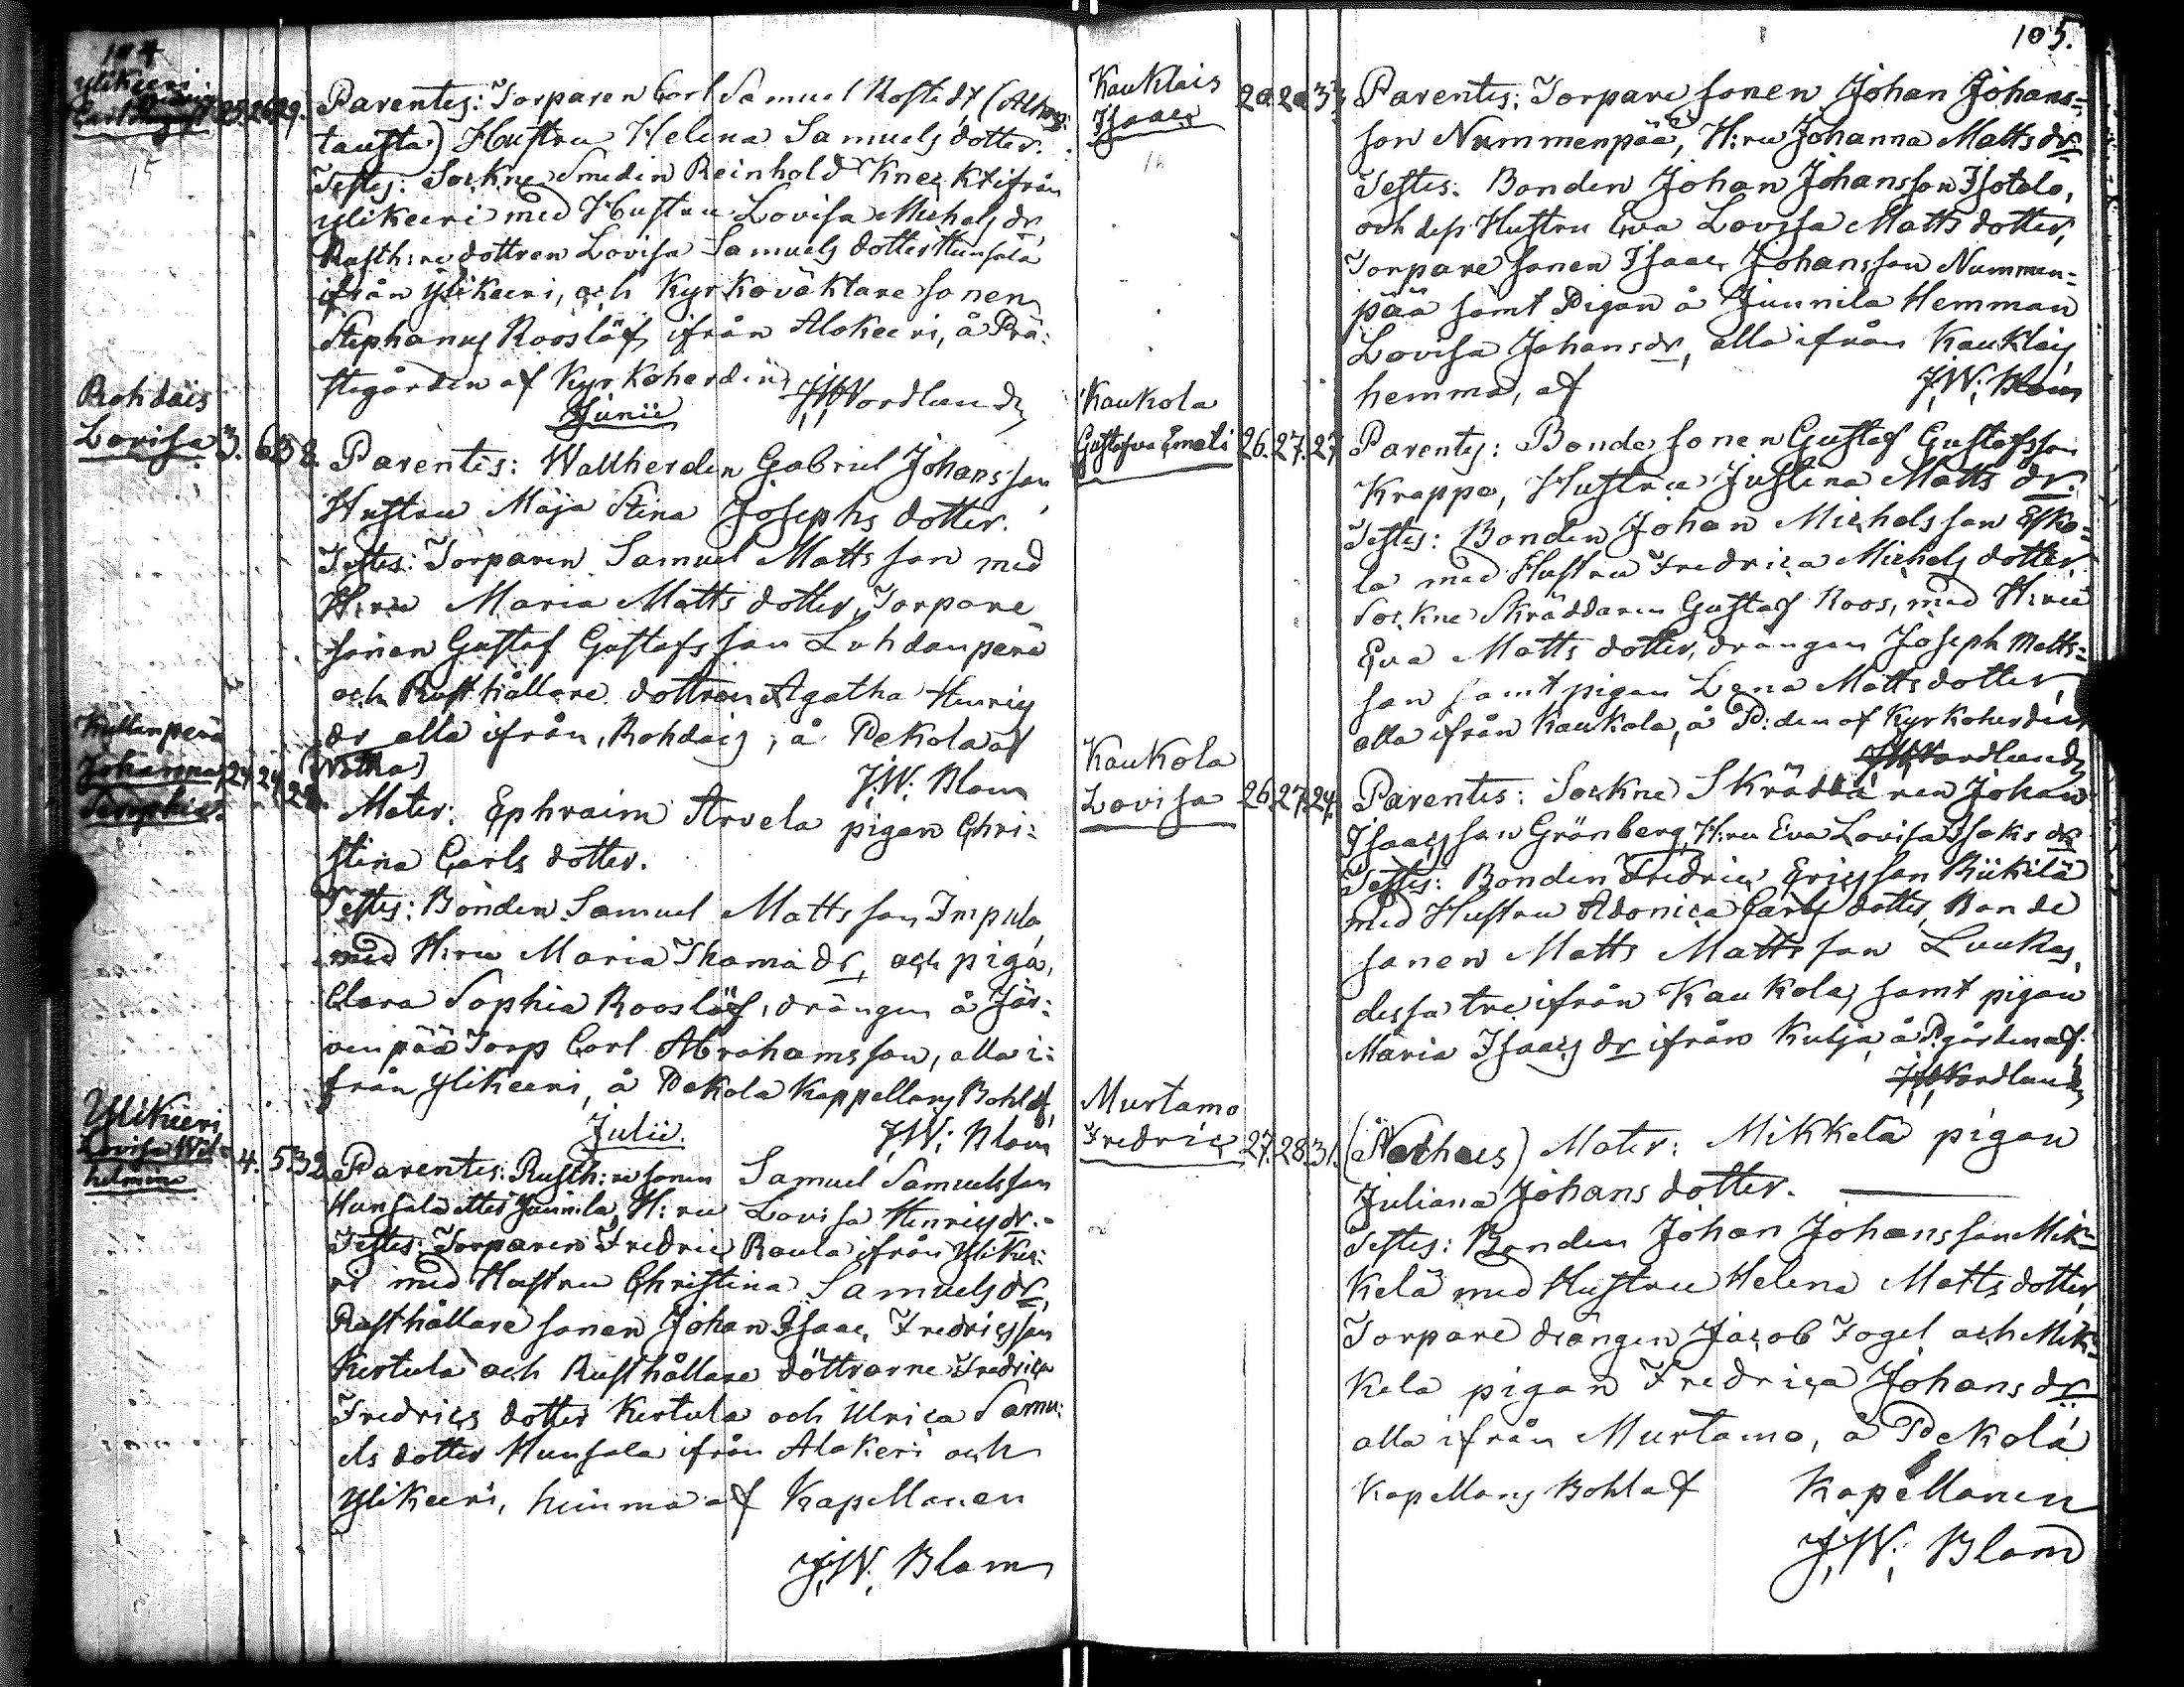 104
Ylikeeri
Carl August 25. 26. 29. Parentes: Torparen Carl Samuel Rostedt (Alhos:
tausta) Hustru Helena Samuels dotter.
15
Testes: Sockne Smeden Reinhold Kneckt ifrån
Ylikeeri med Hustru Lovisa Michels dr,
Rusth:re dottren Lovisa Samuels dotter Hunsala
ifrån Ylikeeri, och Kyrkoväktare sonen
Stephanus Rooslöf ifrån Alakeeri, å Prä:
stegården af Kyrkoherden
JWNordlund
Junii
Rohdais
Lovisa 3. 6. 38. Parentes: Wallherden Gabriel Johansson,
Hustru Maja Stina Josephs dotter.
Testes: Torparen Samuel Matts son med
H:ru Maria Matts dotter, Torpare
sonen Gustaf Gustafsson Lahdanperä
och Rusthållare dottren Agatha Henrics
dr alla ifrån Rohdais, å Pekola af
J.W. Blom
Källenperä
Johanna 24. 24. 28.
Sophia
(Notha)
Mater: Ephraim Arvela pigan Chri:
stina Carls dotter.
Testes: Bonden Samuel Matts son Impula
med H:ru Maria Thoma dr, och piga,
Clara Sophia Rooslöf, drängen å Jär:
venpää Torp Carl Abrahamsson, alla i:
från Ylikeeri, å Pekola Kappellans Bohl af
J.W. Blom
Julii.
Ylikeeri
Lovisa Wil=
helmina 4. 5. 32. Parentes: Rusth:re sonen Samuel Samuelsson
Hunsala eller Junnila, H:ru Lovisa Henrics dr.
Testes: Torparen Fredric Raula ifrån Ylikee:
ri med Hustru Christina Samuels dr,
Rusthållare sonen Johan Isaac Fredricsson
Kertula och Rusthållare döttrarne Fredrica
Fredrics dotter Kertula och Ulrica Samu:
els dotter Hunsala ifrån Alakeri och
Ylikeeri, hemma af Kapellanen
J.W. Blom
105.
Kauklais
Isaac 20. 20. 33. Parentes: Torpare sonen Johan Johans=
son Nummenpää, H:ru Johanna Matts dr.
Testes: Bonden Johan Johansson Isotalo,
och dess Hustru Eva Lovisa Matts dotter,
Torpare sonen Isaac Johansson Nummen=
pää samt Pigan å Junnila Hemman
Lovisa Johans dr, alla ifrån Kauklais,
hemma, af J.W. Blom
Kaukola
Gustafva Emeli 26. 27. 27. Parentes: Bonde sonen Gustaf Gustafsson
Krappe, Hustru Justina Matts dr.
Testes: Bonden Johan Michelsson Esko=
la med Hustru Fredrica Michels dotter,
Sockne Skräddaren Gustaf Roos, med H:ru
Eva Matts dotter, drängen Joseph Matts=
son samt pigan Lena Matts dotter,
alla ifrån Kaukola, å P:den af Kyrkoherden
JWNordlund
Kaukola
Lovisa 26. 27. 24. Parentes: Sockne Skräddaren Johan
Isaacsson Grönberg, H:ru Eva Lovisa Isaks dr
Testes: Bonden Fredric Ericsson Riikilä
med Hustru Adonica Carls dotter, Bonde
sonen Matts Matts son Luukas,
dessa tre ifrån Kaukola, samt pigan
Maria Isaacs dr ifrån Kulja, å P:gården af
JWNordlund
Murtamo
Fredric 27. 28. 31. (Nothus) Mater: Mikkelä pigan
Juliana Johans dotter.
Testes: Bonden Johan Johansson Mik=
kelä med Hustru Helena Matts dotter,
Torpare drängen Jacob Fogel och Mik=
kela pigan Fredrica Johans dr
alla ifrån Murtamo, å Pekola
Kapellans Bohl af Kapellanen
J.W. Blom